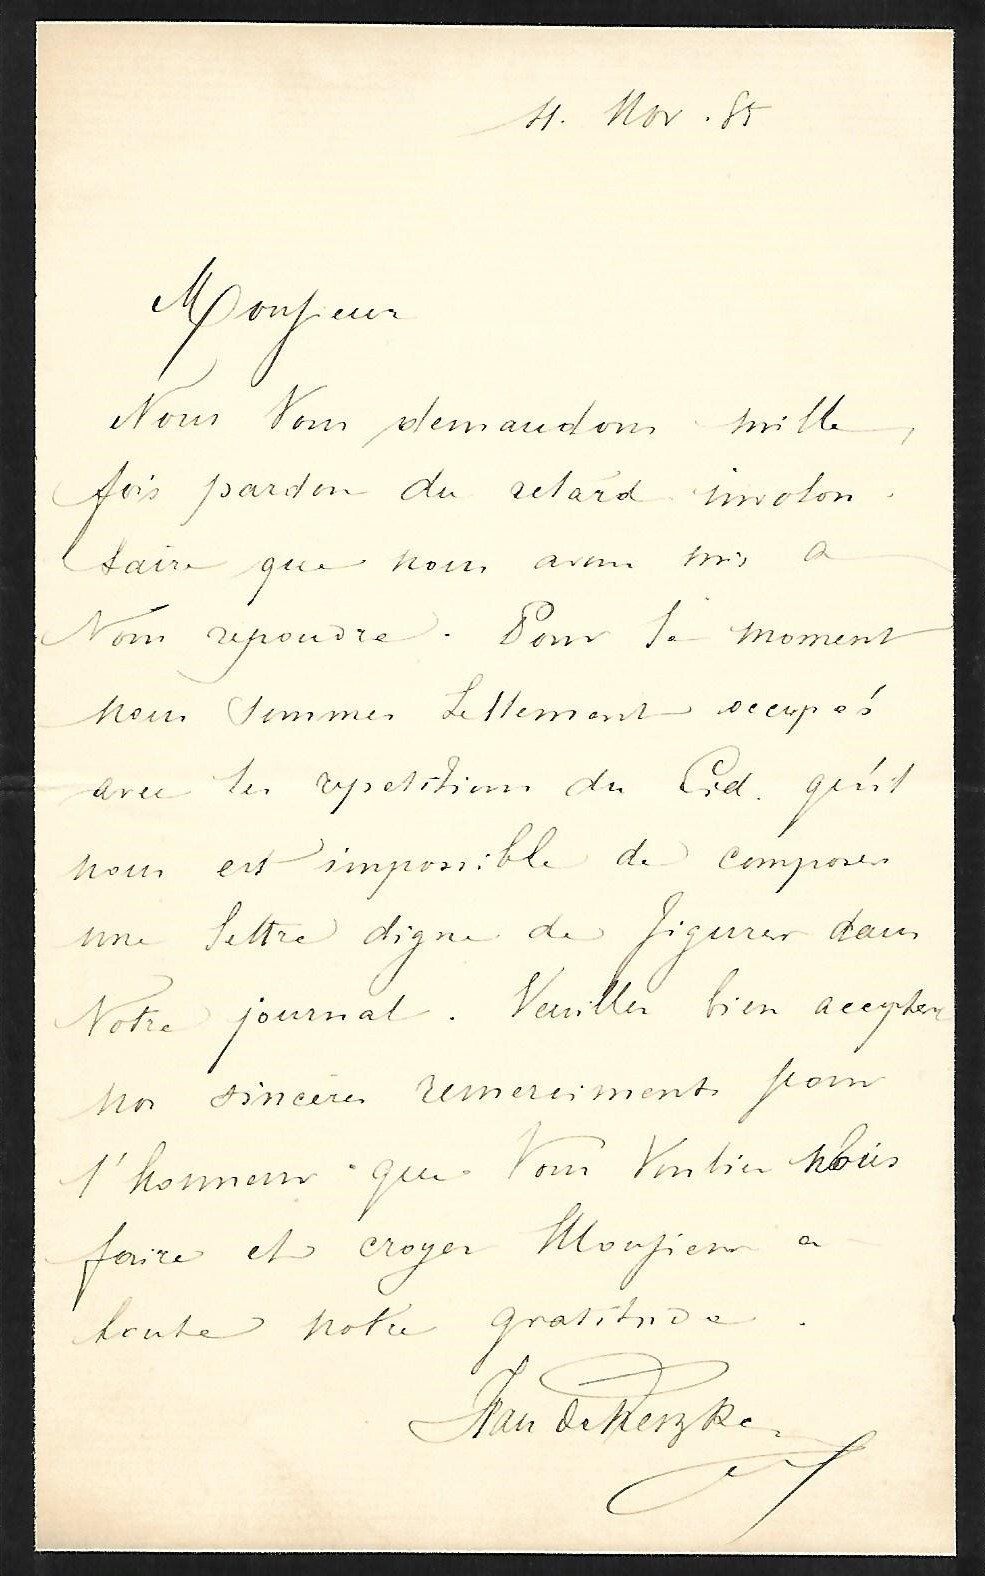 4. Nov. 85
Monsieur
Nous Vous demandons mille
fois pardon du retard involon-
taire que nous avons mis a
Vous repondre. Pour le moment
nous sommes tellement occupés
avec les repetitions du Cid. qu'il
nous est impossible de composer
une lettre digne de figurer dans
Votre journal. Veuillez bien accepter
nos sincères remerciments pour
l'honneur que Vous Vouliez nous
faire et croyez Monsieur a
toute notre gratitude.
Jean de Reszke